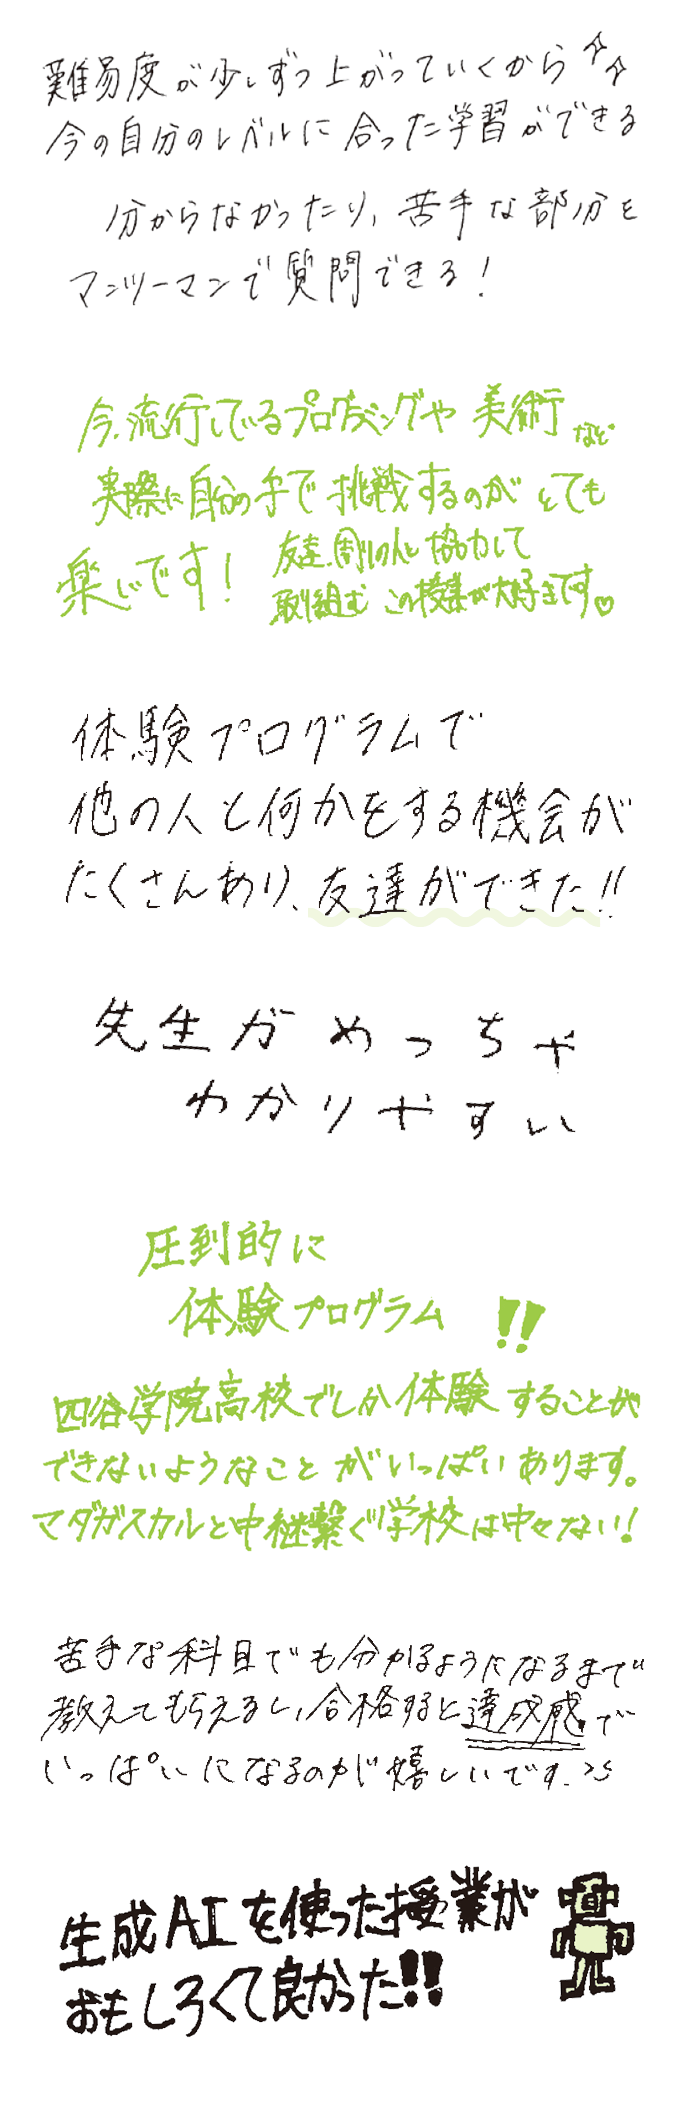 難易度が少しずつ上がっていくから
今の自分のレベルに合った学習ができる
分からなかったり、苦手な部分を
マンツーマンで質問できる!
今、流行しているプログラミングや美術など
実際に自分の手で挑戦するのがとても
楽しいです!
友達、周りの人と協力して
取り組むこの授業が大好きです♡
体験プログラムで
他の人と何かをする機会が
たくさんあり、友達ができた!!
先生がめっちゃ
わかりやすい
圧倒的に
体験プログラム!!
四谷学院高校でしか体験することが
できないようなことがいっぱいあります。
マダガスカルと中継繋ぐ学校は中々ない!
苦手な科目でも分かるようになるまで
教えてもらえるし、合格すると達成感で
いっぱいになるのが嬉しいです.
生成AIを使った授業が
おもしろくて良かった!!